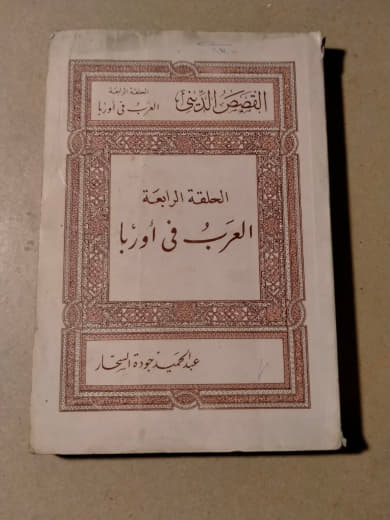 القصص الديني
الحلقة الرابعة
العرب في أوربا
الحلقة الرابعة
العرب في أوربا
عبد الحميد جودة السحار